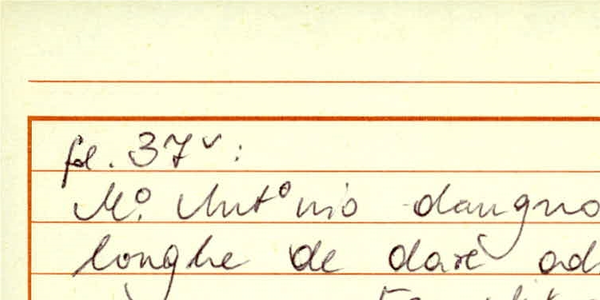 fol. 37v:
Mo. Antonio dangno
longhe de dare ad